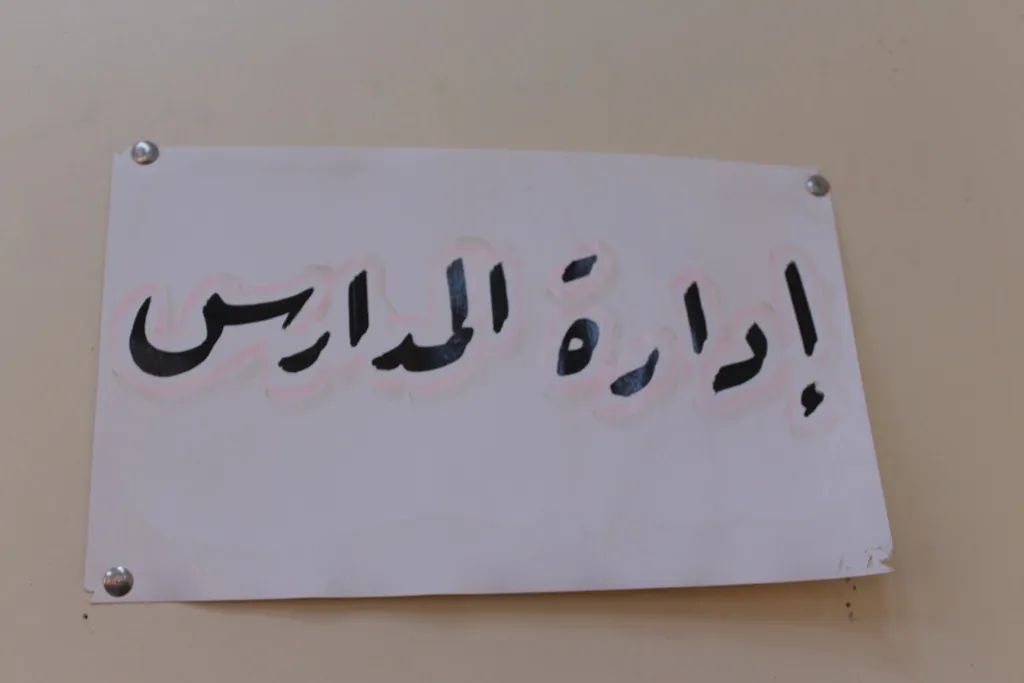 إدارة المدارس